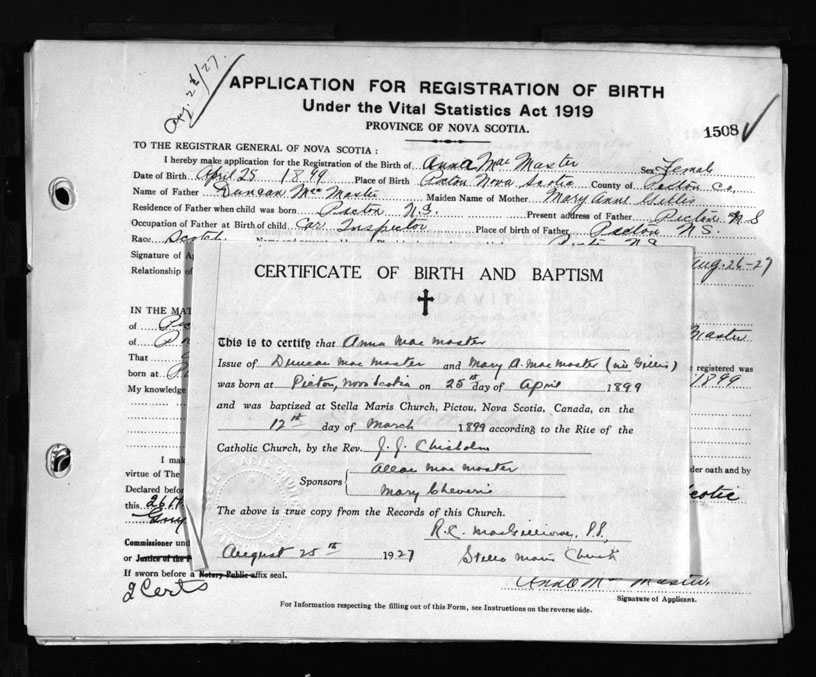 Aug. 28/27.
APPLICATION FOR REGISTRATION OF BIRTH
Under the Vital Statistics Act 1919
PROVINCE OF NOVA SCOTIA.
1508 ✓
TO THE REGISTRAR GENERAL OF NOVA SCOTIA :
I hereby make application for the Registration of the Birth of Anna MacMaster Sex Female
Date of Birth April 25 1899 Place of Birth Pictou Nova Scotia County of Pictou Co.
Name of Father Duncan McMaster Maiden Name of Mother Mary Anne Gillis
Residence of Father when child was born Pictou N.S. Present address of Father Pictou N S
Occupation of Father at Birth of child Car Inspector Place of birth of Father Pictou N S.
Race Scotch N S
Signature of A Aug. 26-27
Relationship of
IN THE MAT
of Pic Master
of
That e registered was
born at 1899
My knowledge
I mak der oath and by
virtue of The
Declared befor
this 26th Scotia
Guy
Commissioner und
or Justice of the P
If sworn before a Notary Public affix seal.
2 Certs
Anna Mc Master
Signature of Applicant.
For Information respecting the filling out of this Form, see Instructions on the reverse side.
CERTIFICATE OF BIRTH AND BAPTISM
This is to certify that Anna Mac Master
Issue of Duncan Mac Master and Mary A. Mac Master (née Gillis)
was born at Pictou, Nova Scotia on 25th day of April 1899
and was baptized at Stella Maris Church, Pictou, Nova Scotia, Canada, on the
12th day of March 1899 according to the Rite of the
Catholic Church, by the Rev. J. J. Chisholm
Sponsors Allan Mac Master
Mary Cheverie
The above is true copy from the Records of this Church.
R.C. MacGillivray, P.P.,
August 25th 1927 Stella Maris Church